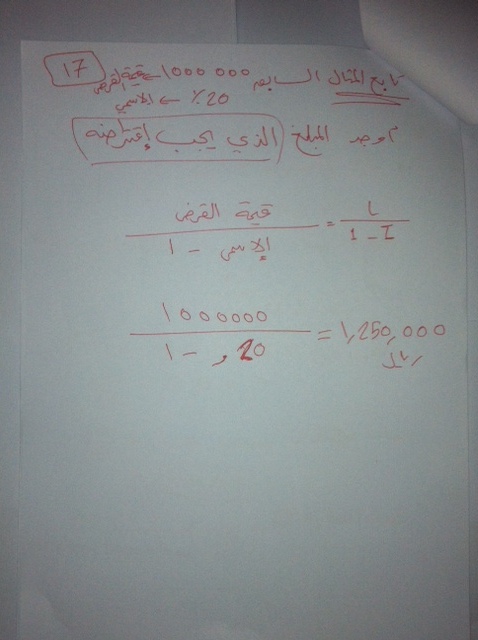 17
تابع المثال السابق 1000000 ← قيمة القرض
20٪ ← الاسمي
اوجد المبلغ الذي يجب إقتراضه
قيمة القرض / 1 - الإسمي = L / 1 - I
1000000 / 1 - ,20 = 1,250,000
ريال